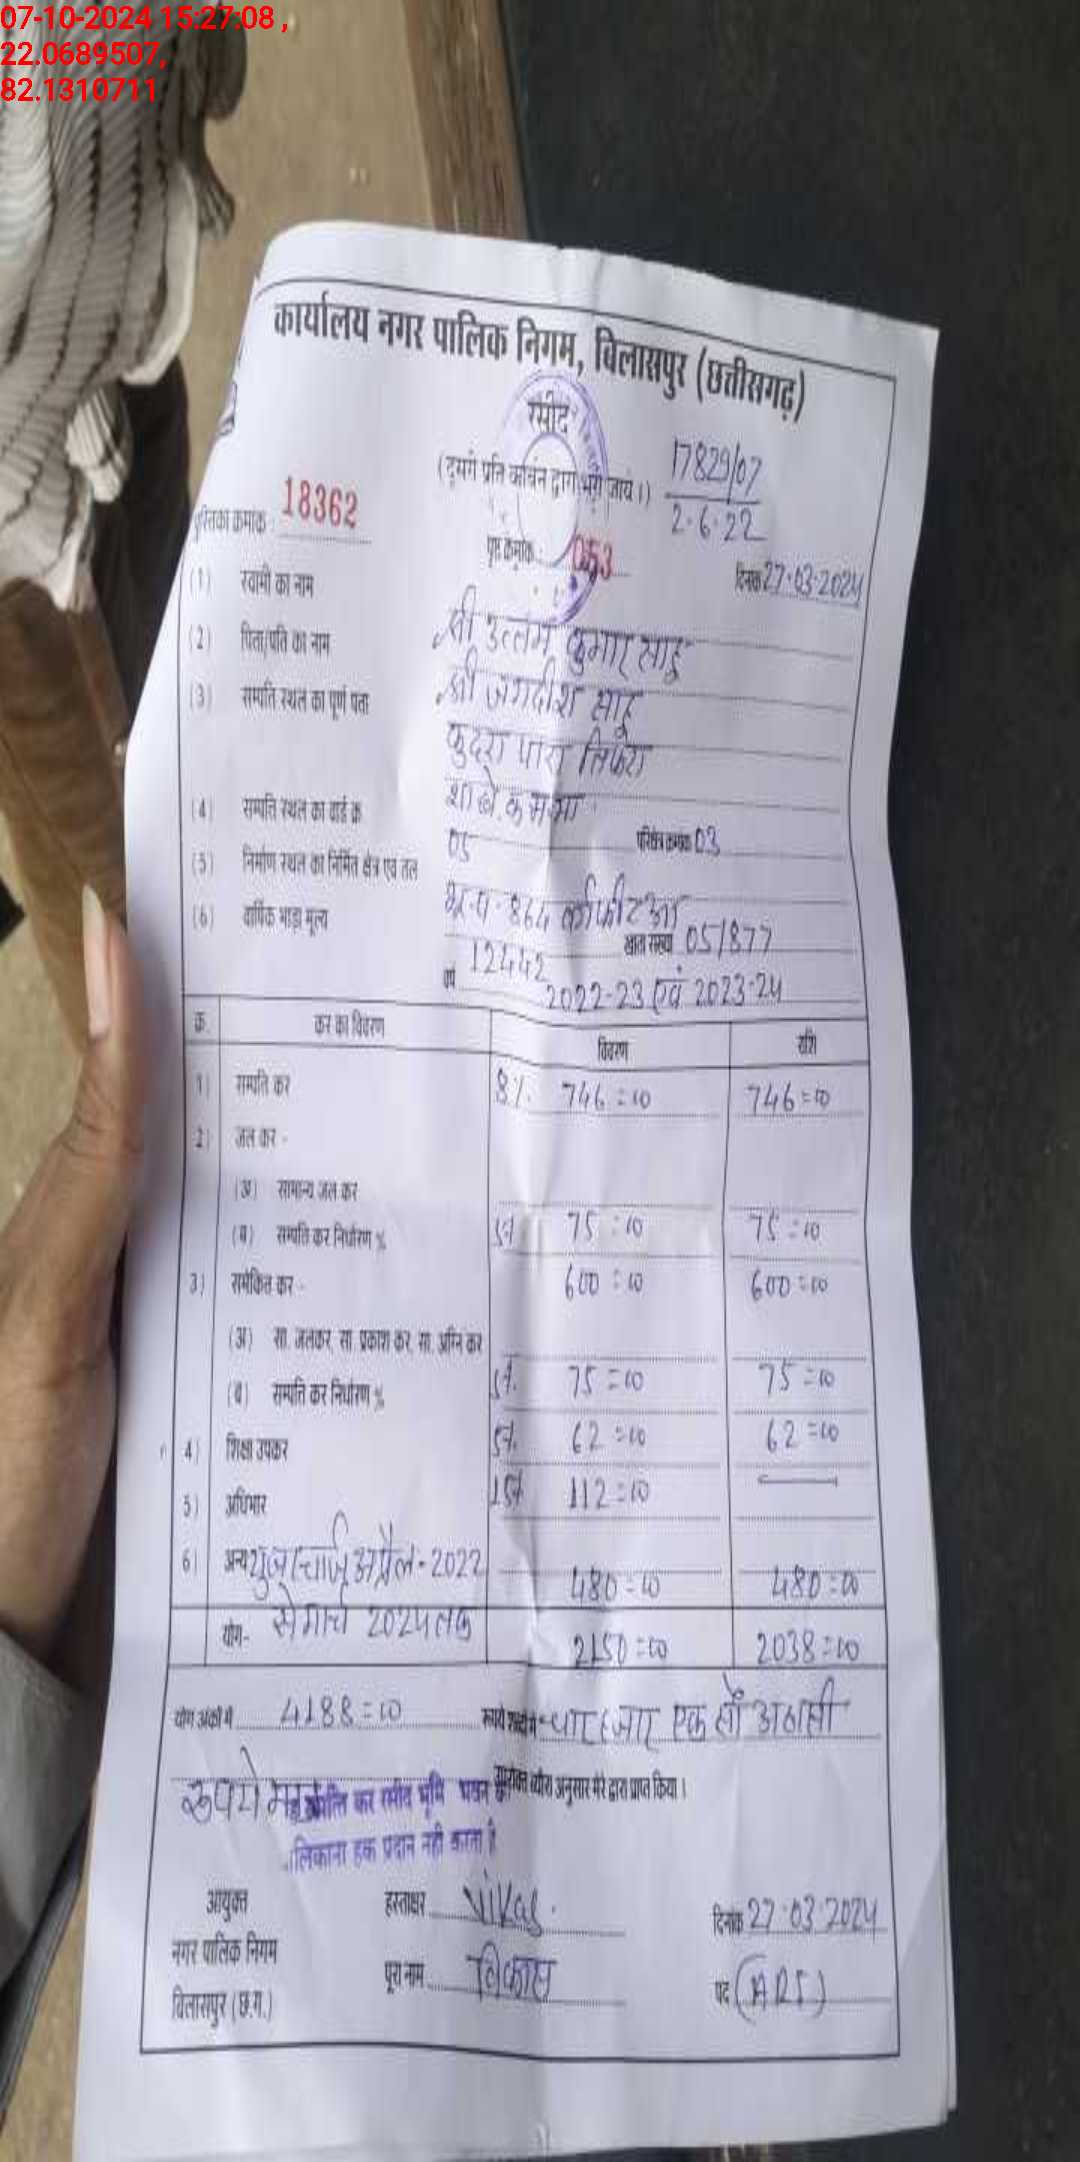 07-10-2024 15:27:08 ,
22.0689507,
82.1310711
कार्यालय नगर पालिक निगम, बिलासपुर (छत्तीसगढ़)
रसीद
17829/07
2.6.22
पुस्तिका क्रमांक : 18362 पृष्ठ क्रमांक : 053 दिनांक 27.03.2024
(1) स्वामी का नाम श्री उत्तम कुमार साहू
(2) पिता/पति का नाम श्री जगदीश साहू
(3) सम्पति स्थल का पूर्ण पता कुदरा पारा तिफरा
(4) सम्पति स्थल का वार्ड क्र. 05 परिक्षेत्र क्रमांक 03
(5) निर्माण स्थल का निर्मित क्षेत्र एवं तल 864
(6) वार्षिक भाड़ा मूल्य 12442 खाता संख्या 05/877
वर्ष 2022-23 एवं 2023-24
क्र. कर का विवरण विवरण राशि
1) सम्पति कर 8% 746=00 746=00
2) जल कर -
(अ) सामान्य जल कर
(ब) सम्पति कर निर्धारण % 75=00 75=00
3) समेकित कर - 600=00 600=00
(अ) सा. जलकर, सा. प्रकाश कर, सा. अग्नि कर
(ब) सम्पति कर निर्धारण % 5% 75=00 75=00
4) शिक्षा उपकर 5% 62=00 62=00
5) अधिभार 15% 112=00
6) अन्य यूजर चार्ज अप्रैल-2022 480=00 480=00
से मार्च 2024 तक
योग- 2150=00 2038=00
योग अंकों में 4188=00 रूपये शब्दों में चार हजार एक सौ अठासी
रूपये मात्र उपरोक्त ब्यौरा अनुसार मेरे द्वारा प्राप्त किया ।
सम्पत्ति कर रसीद भूमि भवन
हक प्रदान नही करता है
आयुक्त हस्ताक्षर Vikas दिनांक 27.03.2024
नगर पालिक निगम पूरा नाम विकास पद (ARI)
बिलासपुर (छ.ग.)